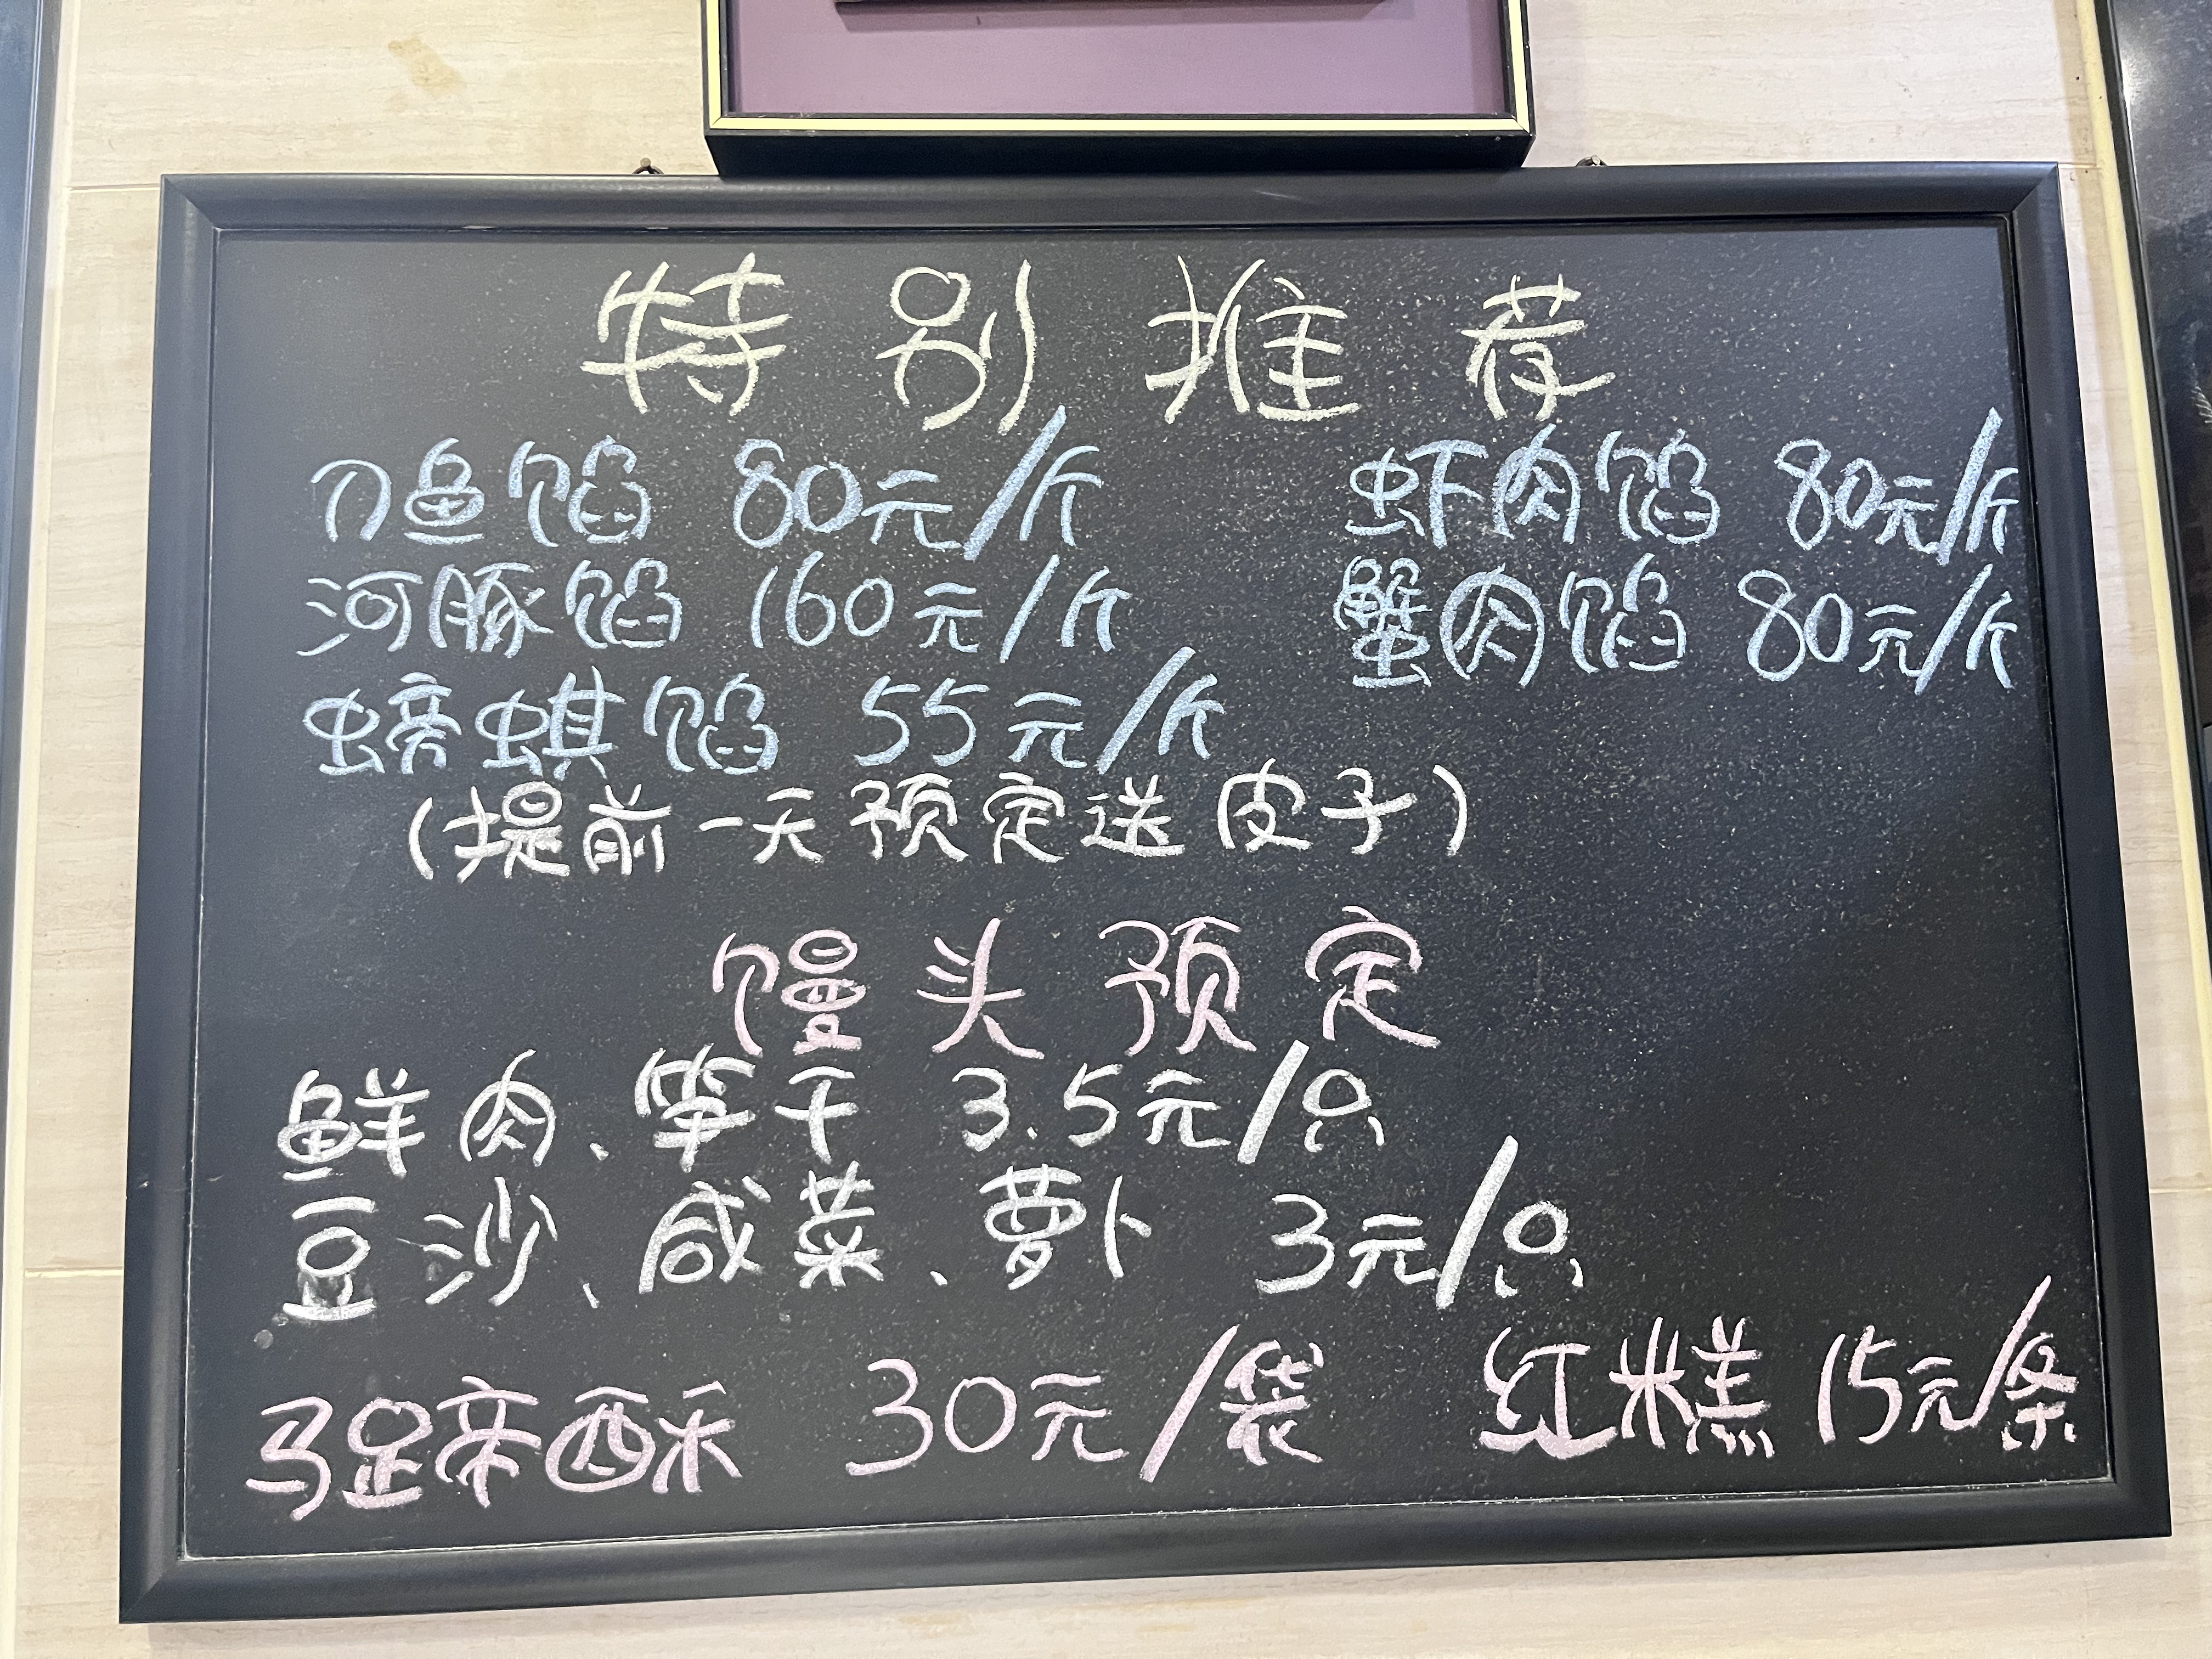 特别推荐
刀鱼馅 80元/斤 虾肉馅 80元/斤
河豚馅 160元/斤 蟹肉馅 80元/斤
螃蜞馅 55元/斤
(提前一天预定送皮子)
馒头预定
鲜肉、笋干 3.5元/只
豆沙、咸菜、萝卜 3元/只
马蹄酥 30元/袋 红糕 15元/条